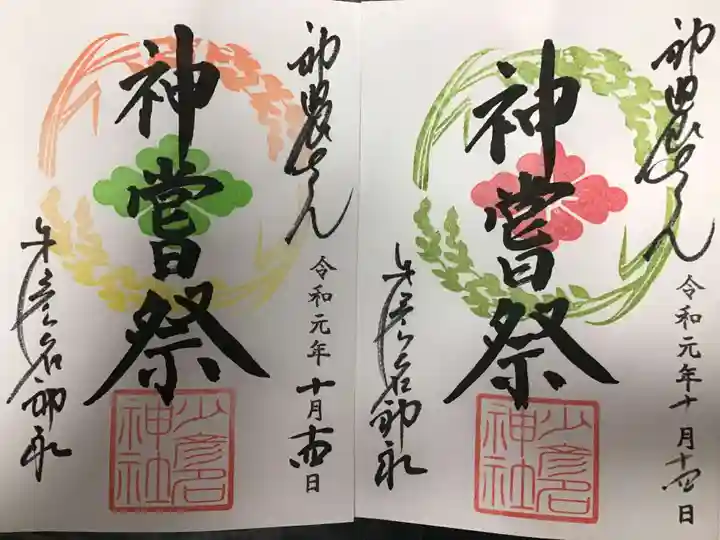 神農さん
令和元年十月十四日
神嘗祭
少彦名
神社
少彦名神社
神農さん
令和元年十月十四日
神嘗祭
少彦名
神社
少彦名神社